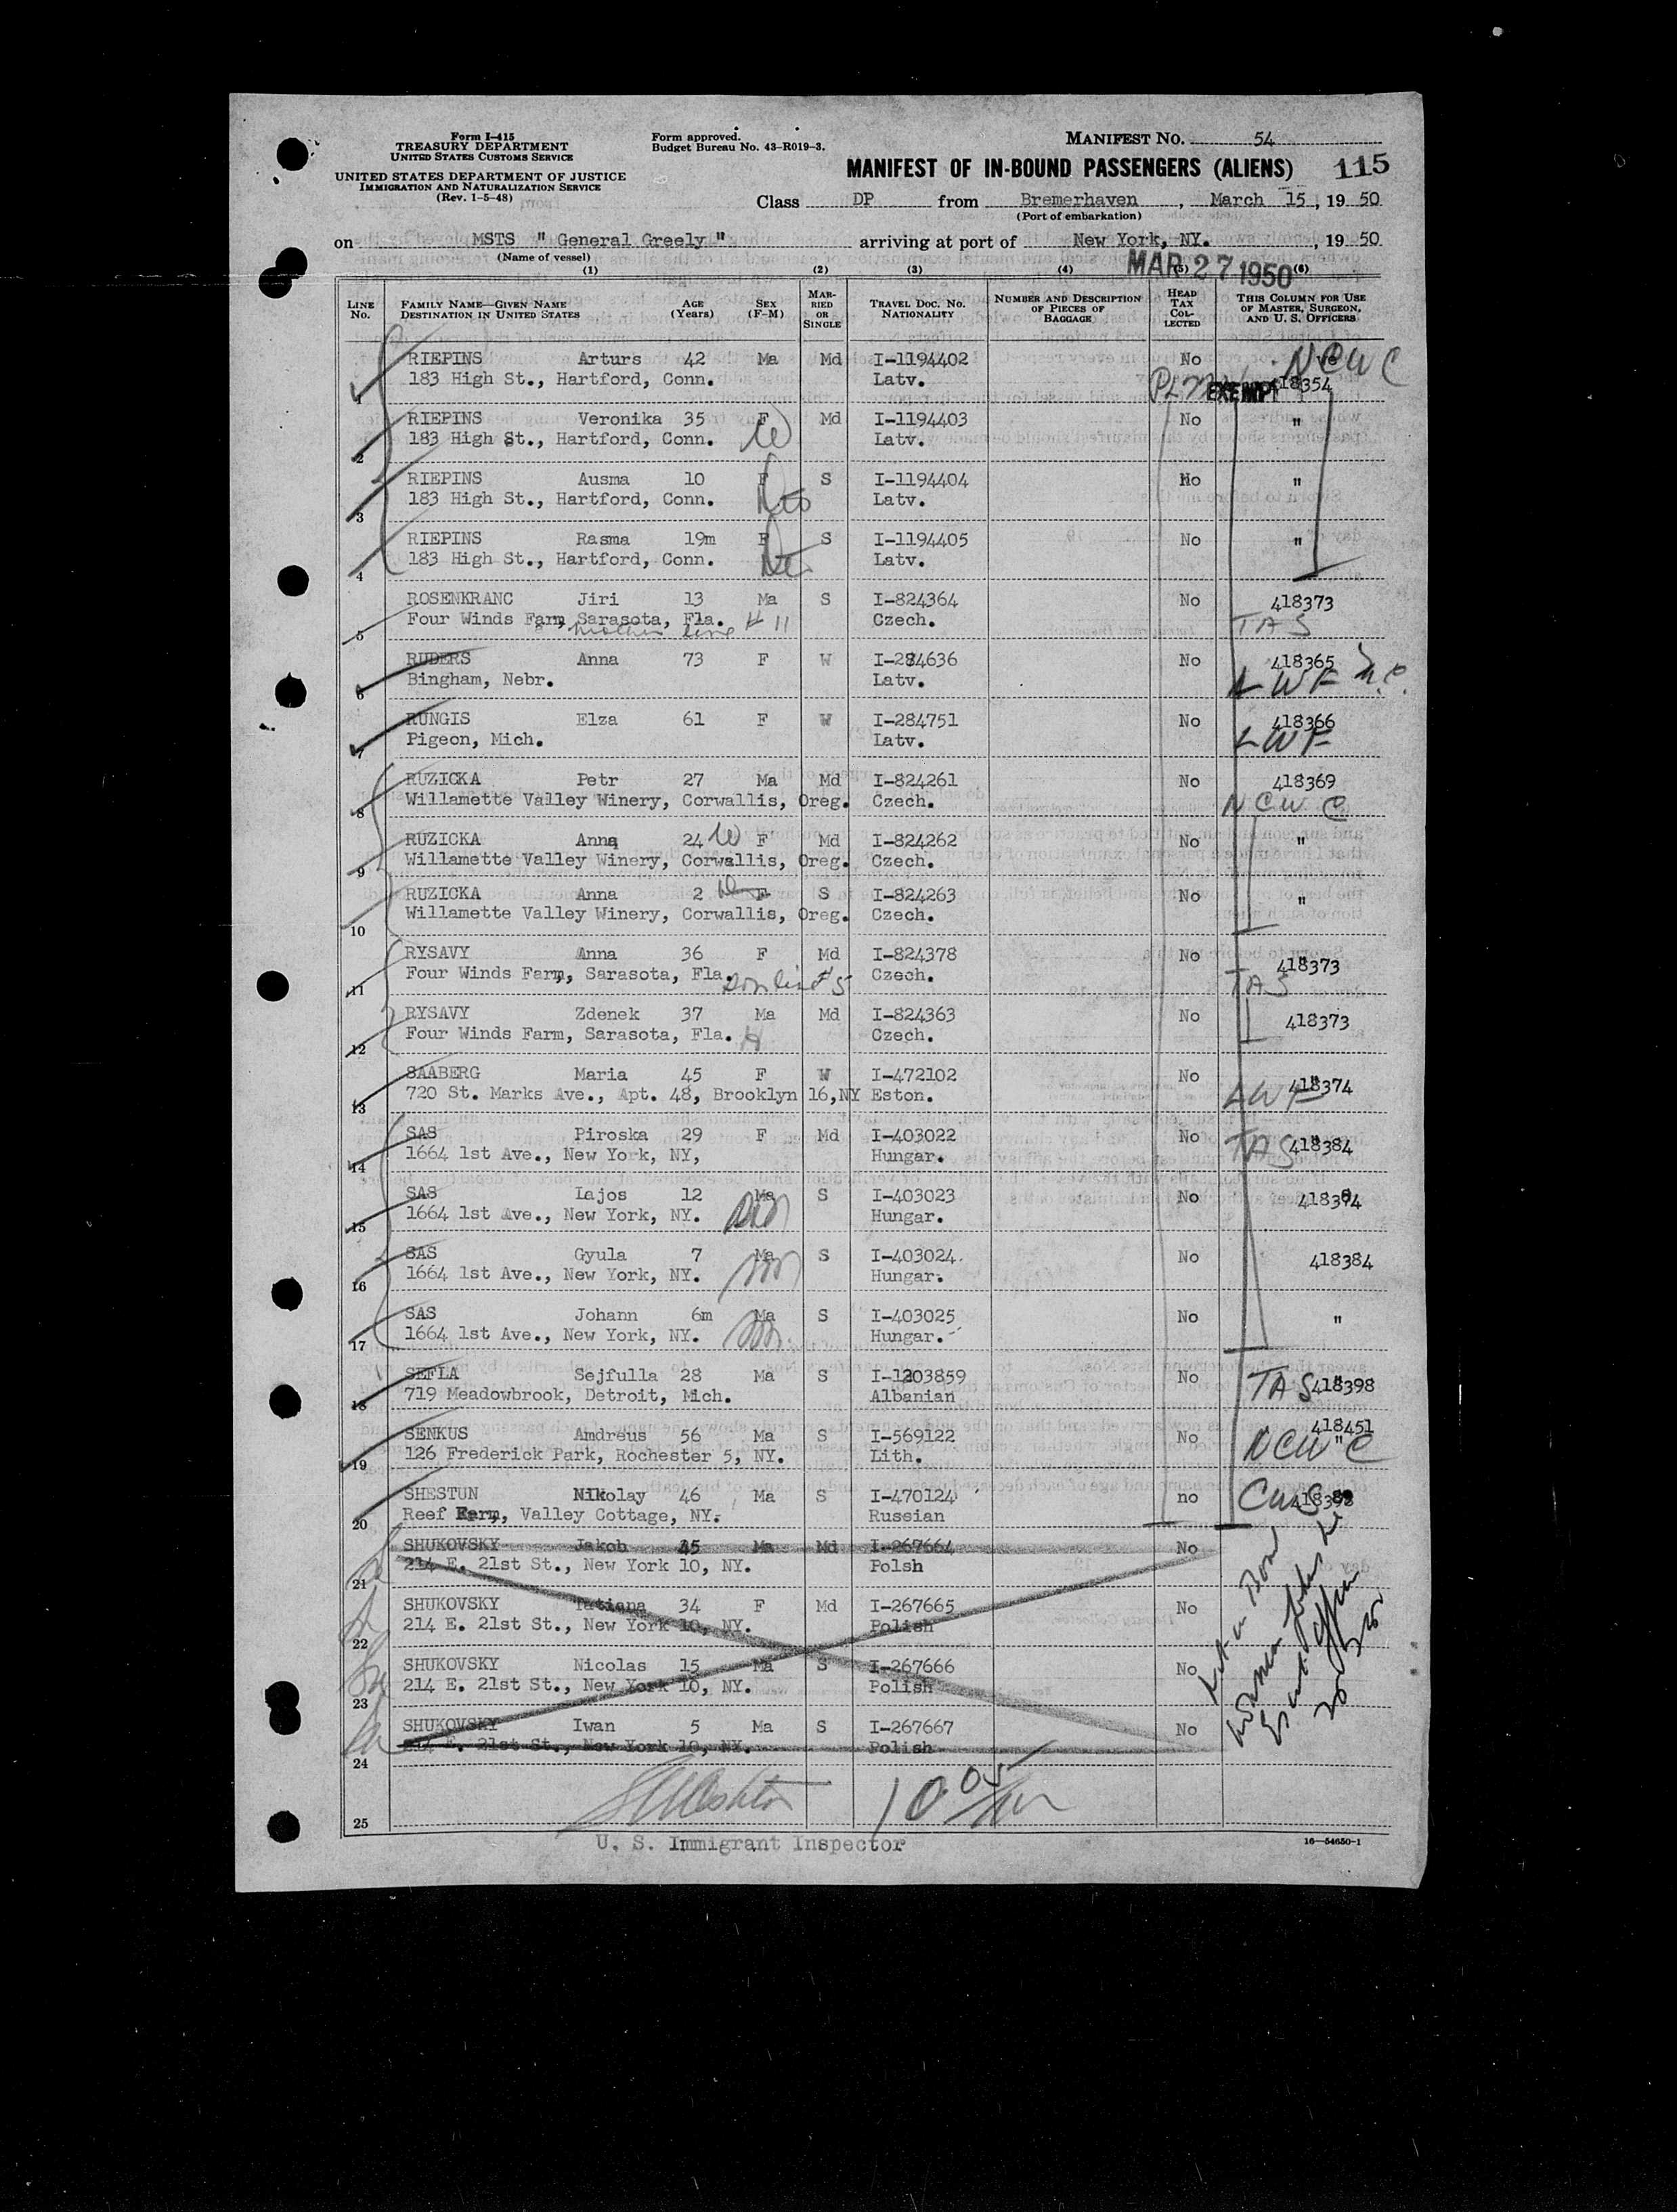 Form I-415
TREASURY DEPARTMENT
UNITED STATES CUSTOMS SERVICE
UNITED STATES DEPARTMENT OF JUSTICE
IMMIGRATION AND NATURALIZATION SERVICE
(Rev. 1-5-48)
Form approved.
Budget Bureau No. 43-R019-3.
MANIFEST NO. 54
MANIFEST OF IN-BOUND PASSENGERS (ALIENS) 115
Class DP from Bremerhaven, March 15, 19 50
(Port of embarkation)
on MSTS " General Greely " arriving at port of New York, NY., 19 50
(Name of vessel)
MAR 27 1950
(1) (2) (3) (4) (5) (6)
LINE No. FAMILY NAME—GIVEN NAME DESTINATION IN UNITED STATES AGE (Years) SEX (F-M) MARRIED OR SINGLE TRAVEL DOC. No. NATIONALITY NUMBER AND DESCRIPTION OF PIECES OF BAGGAGE HEAD TAX COLLECTED THIS COLUMN FOR USE OF MASTER, SURGEON, AND U. S. OFFICERS
RIEPINS Arturs 42 Ma Md I-1194402 No NCWC
1 183 High St., Hartford, Conn. Latv. EXEMPT 418354
RIEPINS Veronika 35 F Md I-1194403 No "
2 183 High St., Hartford, Conn. W Latv.
RIEPINS Ausma 10 F S I-1194404 No "
3 183 High St., Hartford, Conn. Latv.
RIEPINS Rasma 19m F S I-1194405 No "
4 183 High St., Hartford, Conn. Latv.
ROSENKRANC Jiri 13 Ma S I-824364 No 418373
5 Four Winds Farm, Sarasota, Fla. Czech. TAS
mother line # 11
RUDERS Anna 73 F W I-284636 No 418365
6 Bingham, Nebr. Latv. LWF
RUNGIS Elza 61 F W I-284751 No 418366
7 Pigeon, Mich. Latv. LWF
RUZICKA Petr 27 Ma Md I-824261 No 418369
8 Willamette Valley Winery, Corwallis, Oreg. Czech. NCWC
RUZICKA Anna 24 W F Md I-824262 No "
9 Willamette Valley Winery, Corwallis, Oreg. Czech.
RUZICKA Anna 2 F S I-824263 No "
10 Willamette Valley Winery, Corwallis, Oreg. Czech.
RYSAVY Anna 36 F Md I-824378 No 418373
11 Four Winds Farm, Sarasota, Fla. Son line #5 Czech. TAS
RYSAVY Zdenek 37 Ma Md I-824363 No 418373
12 Four Winds Farm, Sarasota, Fla. H Czech.
SAABERG Maria 45 F W I-472102 No 418374
13 720 St. Marks Ave., Apt. 48, Brooklyn 16,NY Eston. LWF
SAS Piroska 29 F Md I-403022 No TAS 418384
14 1664 1st Ave., New York, NY, Hungar.
SAS Lajos 12 Ma S I-403023 No
15 1664 1st Ave., New York, NY. Hungar.
SAS Gyula 7 Ma S I-403024 No 418384
16 1664 1st Ave., New York, NY. Hungar.
SAS Johann 6m Ma S I-403025 No "
17 1664 1st Ave., New York, NY. Hungar.
SEFLA Sejfulla 28 Ma S No TAS 418398
18 719 Meadowbrook, Detroit, Mich. Albanian
SENKUS Amdreus 56 Ma S I-569122 No 418451
19 126 Frederick Park, Rochester 5, NY. Lith. NCWC
SHESTUN Nikolay 46 Ma S I-470124 no CWS
20 Reef Farm, Valley Cottage, NY. Russian
SHUKOVSKY Jakob 45 Ma Md I-267664 No
21 214 E. 21st St., New York 10, NY. Polsh
SHUKOVSKY Tatiana 34 F Md I-267665 No
22 214 E. 21st St., New York 10, NY. Polish
SHUKOVSKY Nicolas 15 Ma S I-267666 No
23 214 E. 21st St., New York 10, NY. Polish
SHUKOVSKY Iwan 5 Ma S I-267667 No
24 214 E. 21st St., New York 10, NY. Polish
Not on Board
25
U. S. Immigrant Inspector
16—54650-1